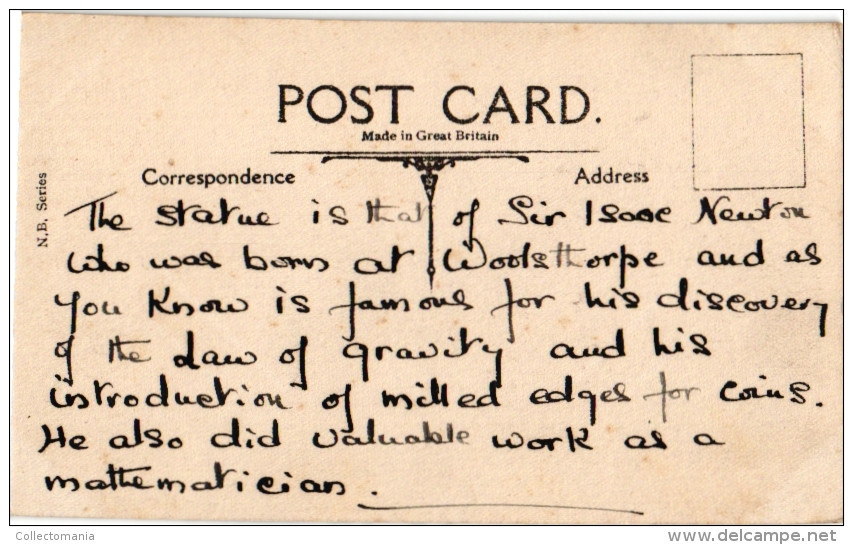 POST CARD.
Made in Great Britain
Correspondence
Address
N.B. Series
The statue is that of Sir Isaac Newton
who was born at Woolsthorpe and as
you know is famous for his discovery
of the Law of gravity and his
introduction of milled edges for coins.
He also did valuable work as a
mathematician.
Collectomania
www.delcampe.net